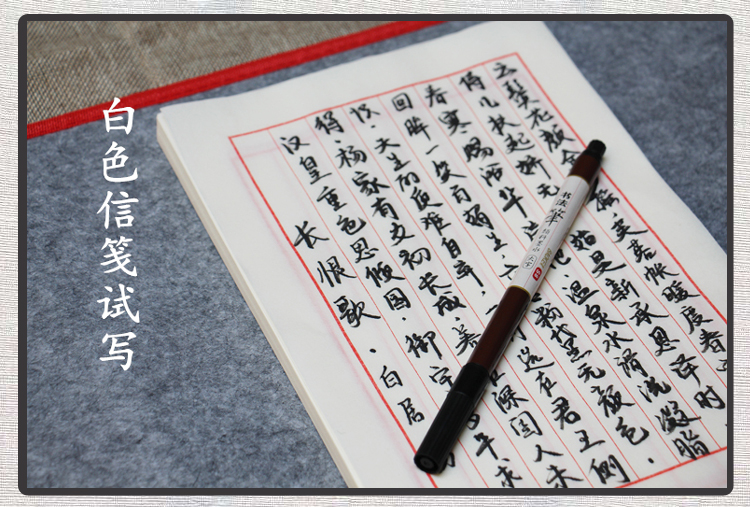 白色信笺试写
长恨歌·白居
汉皇重色思倾国·御宇年求
得·杨家有女初长成·养深国人未
识·天生丽质难自弃·选在君王侧
回眸一笑百媚生·粉黛无颜色·
春寒赐浴华池·温泉水滑洗凝脂
侍儿扶起娇无始是新承恩泽时
云鬓花颜金摇·芙蓉帐暖度春
书法软笔